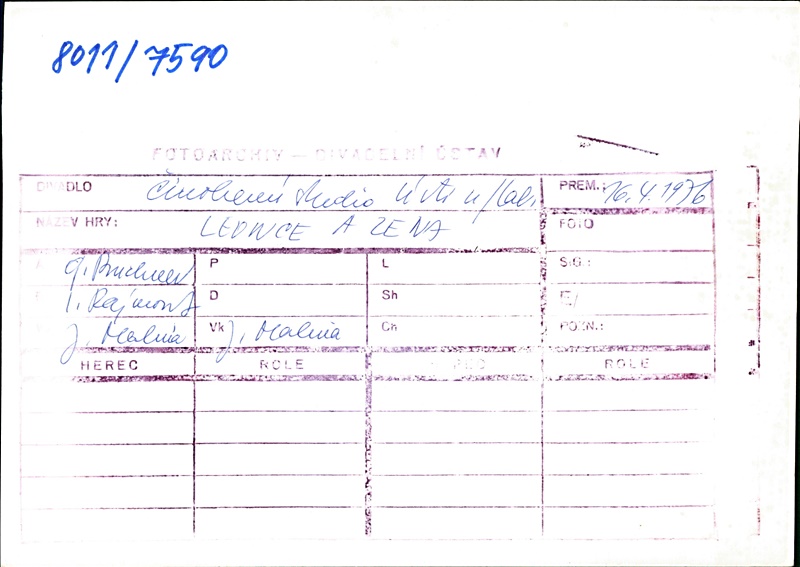 8011/7590
FOTOARCHIV — DIVADELNÍ ÚSTAV
DIVADLO Činoherní studio Ústí n/Lab. PREM.: 16.4.1976
NÁZEV HRY: LEONCE A LENA FOTO
G. Büchner P L SIG.:
I. Rajmont D Sh
J. Malina Vk J. Malina Ch POZN.:
HEREC ROLE ROLE